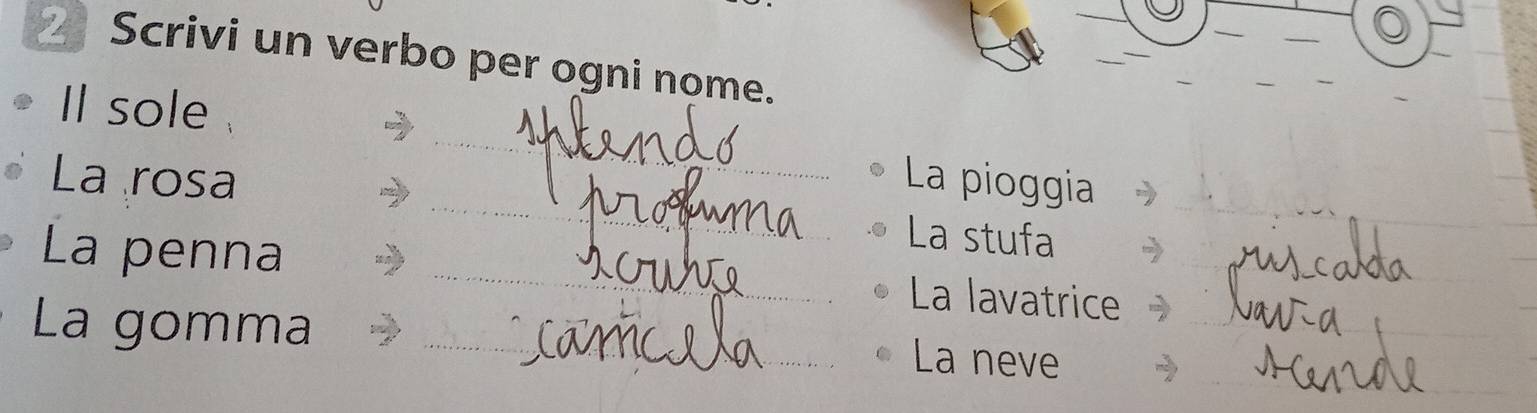 2 Scrivi un verbo per ogni nome.
• Il sole → splendo
• La rosa → profuma
• La penna → scrive
• La gomma → cancela
• La pioggia →
• La stufa → riscalda
• La lavatrice → lava
• La neve → scende